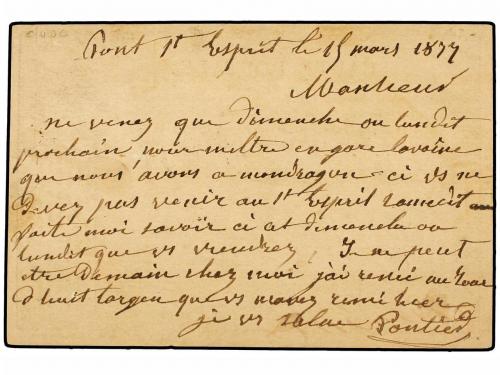 Pont St Esprit le 15 mars 1877
Monsieur
ne venez que dimenche ou lundit
prochain pour meltre en gare lavoine
que nous avons a mondragon ci vs ne
devez pas venir au St Esprit samedit
faite moi savoir ci cet dimenche ou
lundit que vs viendrez, Je ne peut
etre Demain chez moi j'ai remi au
d huit largen que vs mavez remi hier
je vs salue Pontier